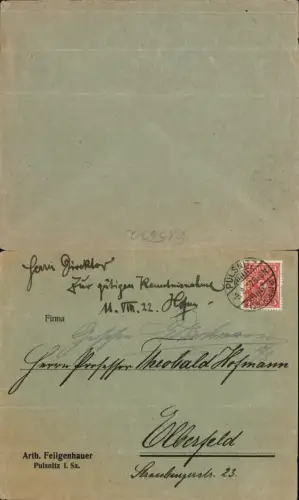 Herrn Direktor
Zur gütigen Kenntnisnahme
11. VIII. 22.
Firma
Herrn Professor Theobald Hofmann
Elberfeld
Strassburgerstr. 23.
Arth. Feilgenhauer
Pulsnitz i. Sa.
PULSN